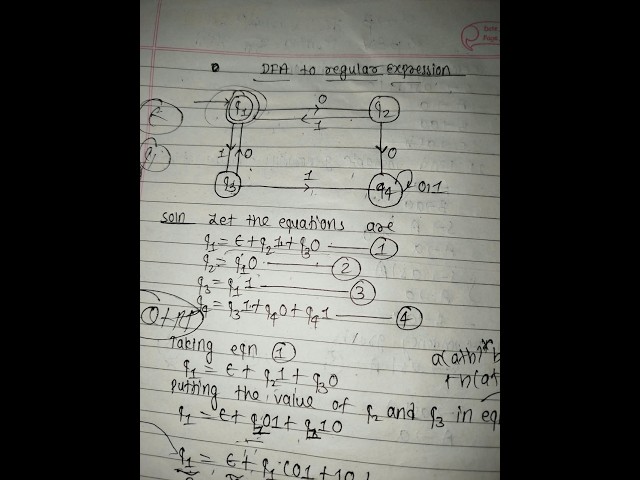 Date
Page
DFA to regular Expression
q1 0 q2
1
1 0 0
q3 1 q4 0,1
Soln Let the equations are
q1 = ε + q21 + q30 — 1
q2 = q10 — 2
q3 = q11 — 3
q4 = q31 + q40 + q41 — 4
Taking eqn 1
a(a+b)* b
q1 = ε + q21 + q30
+ b(a+
putting the value of q2 and q3 in eq
q1 = ε + q101 + q110
q1 = ε + q1(01+10)